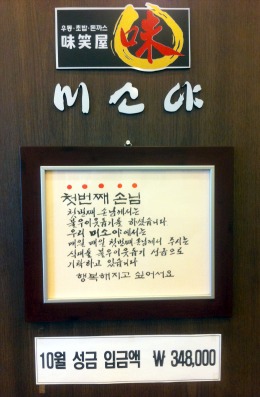 우동·초밥·돈까스
味笑屋
味
미소야
첫번째 손님
첫번째 손님께서는
불우이웃돕기를 하셨습니다
우리 미소야에서는
매일 매일 첫번째 손님께서 주시는
식대를 불우이웃돕기 성금으로
기탁하고 있습니다
행복해지고 싶어서요
10월 성금 입금액 ₩ 348,000